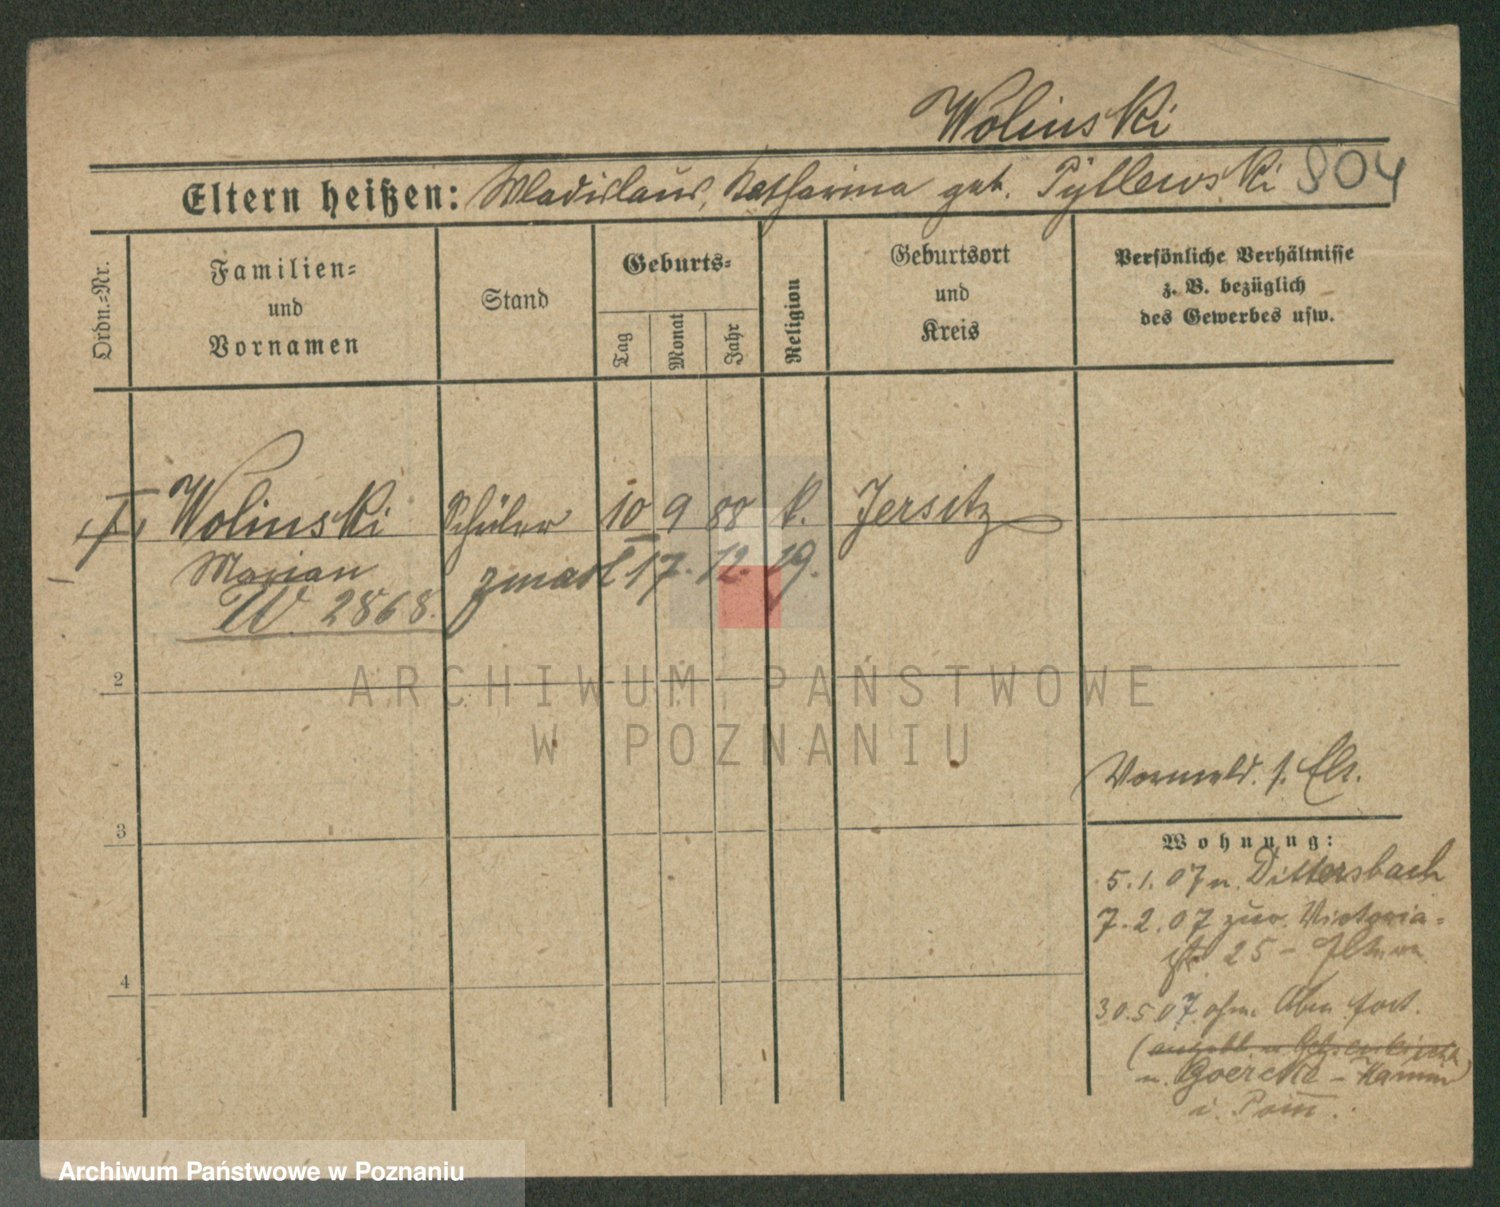 Wolinski
Eltern heißen: Wladislaus, Katharina geb. Pyllewski 804
Ordn.-Nr.
Familien-
und
Vornamen
Stand
Geburts-
Tag
Monat
Jahr
Religion
Geburtsort
und
Kreis
Persönliche Verhältnisse
z. B. bezüglich
des Gewerbes usw.
Wolinski Schüler 10 9 88 k. Jersitz
Marian zmarł 17. 12. 29.
W. 2868.
2
3
4
Vormeld. s. Elt.
Wohnung:
5.1.07 n. Dittersbach
7.2.07 zur. Victoria-
str. 25 - Eltern
30.5.07 ohne Abm. fort.
n. Goercke - Kammin
i. Pom.
ARCHIWUM PAŃSTWOWE
W POZNANIU
Archiwum Państwowe w Poznaniu